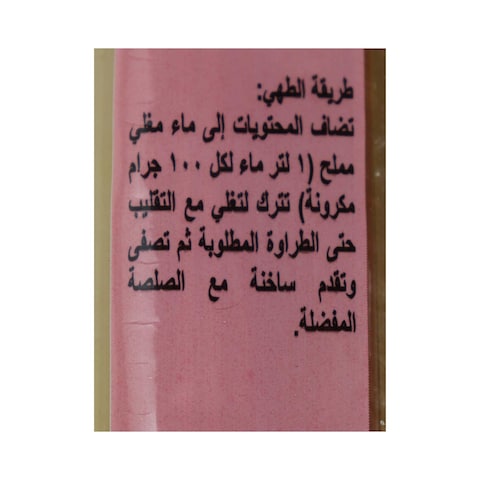 طريقة الطهي:
تضاف المحتويات إلى ماء مغلي
مملح (١ لتر ماء لكل ١٠٠ جرام
مكرونة) تترك لتغلي مع التقليب
حتى الطراوة المطلوبة ثم تصفى
وتقدم ساخنة مع الصلصة
المفضلة.